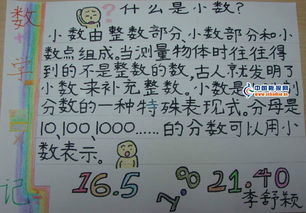 数学
记
什么是小数?
小数由整数部分、小数部分和小
数点组成。当测量物体时往往得
到的不是整数的数,古人就发明了
小数来补充整数。小数是
分数的一种特殊表现式。分母是
10,100,1000……的分数可以用小
数表示。
16.5 1.8 21.40
李舒颖